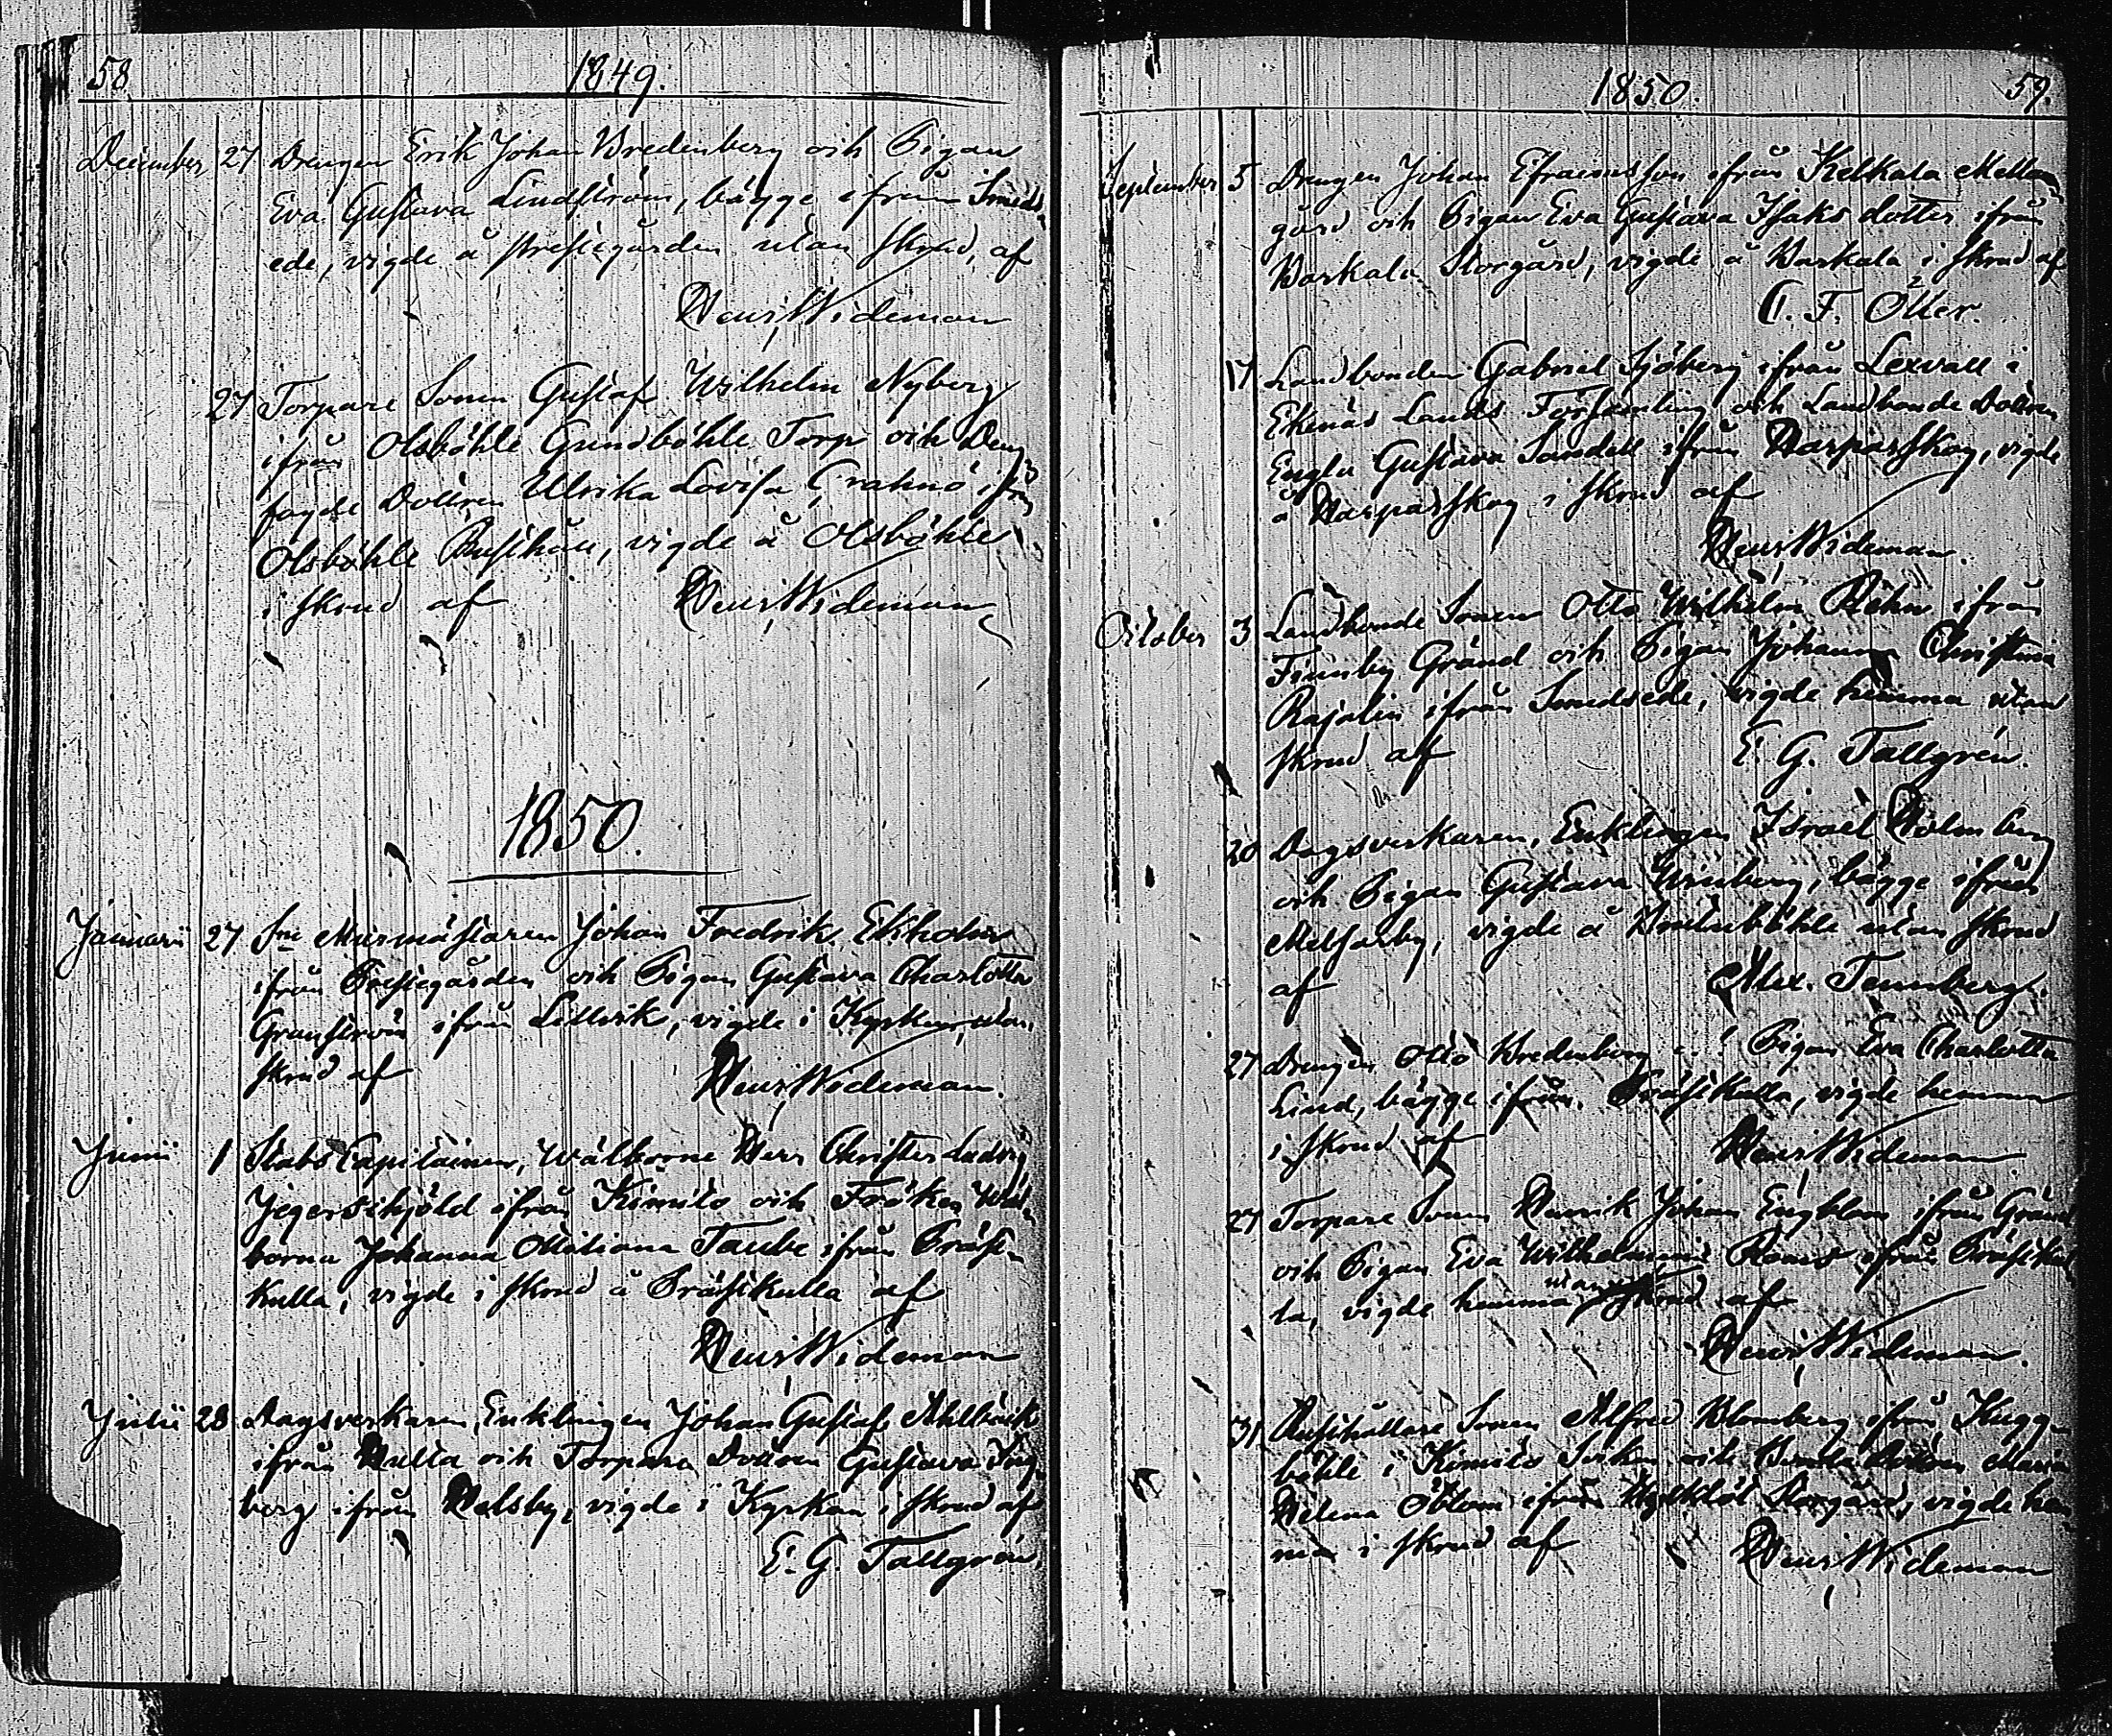 58. 1849.
December 27 Drengen Erik Johan Bredenberg och Pigan
Eva Gustava Lindström, bägge ifrån Smeds-
ede, vigde å Prestegården utan skrud, af
Henr. Wideman
27 Torpare Sonen Gustaf Wilhelm Nyberg
ifrån Olsböhle Gundböhle Torp och
fogde Dottren Ullrika Lovisa ifrån
Olsböhle Rusthåll, vigde å Olsböhle
i skrud af Henr. Wideman
1850.
Januarii 27 Murmästaren Johan Fredrik Ekholm
ifrån Prestegården och Pigan Gustava Charlotta
Granström ifrån Lillvik, vigde i Kyrkan, utan
skrud af Henr. Wideman.
Junii 1 Stabs Capitainen, Wälborne Herr Christer Ludvig
Jegerschjöld ifrån Kimito och Fröken Wäl-
borna Johanna Miliana Taube ifrån Träsk-
kulla, vigde i skrud å Träskkulla af
Henr. Wideman
Julii 28 Dagsverkaren, Enklingen Johan Gustaf
ifrån Hulta och Torpare Dottren Gustava
berg ifrån Helsby, vigde i Kyrkan i skrud af
E. G. Tallgrén.
1850. 59.
September 5 Drengen Johan Efraimsson ifrån Kelkala Mellan-
gård och Pigan Eva Gustava Isaks dotter ifrån
Storgård, vigde å i skrud af
C. F. Otter.
17 Landbonden Gabriel Sjöberg ifrån Lexvall i
Ekenäs Lands Församling och Landbonde Dottren
Engla Gustava Sandell ifrån Harparskog, vigde
å Harparskog i skrud af
Henr. Wideman.
October 3 Landbonde Sonen Otto Wilhelm ifrån
Finnby Gränd och Pigan Johanna Christina
Rajalin ifrån Smedsede, vigde hemma utan
skrud af E. G. Tallgrén.
20 Dagsverkaren, Enklingen Israel Holmberg
och Pigan Gustava bägge ifrån
Melsarby, vigde å utan skrud
af Alex. Tennberg.
27 Drengen Otto Bredenberg Pigan Eva Charlotta
Lind, bägge ifrån Träskkulla, vigde hemma
i skrud af Henr. Wideman
27 Torpare Sonen Henrik Johan Engblom ifrån Gränd
och Pigan Eva Wilhelmina Roms ifrån Träskkul-
la, vigde hemma utan skrud af
Henr. Wideman.
31 Rusthållare Sonen Alfred Blomberg ifrån Kugg-
böhle i Kimito Socken och Bonde Dottren Maria
Helena Öblom ifrån Storgård, vigde hem-
ma i skrud af Henr. Wideman